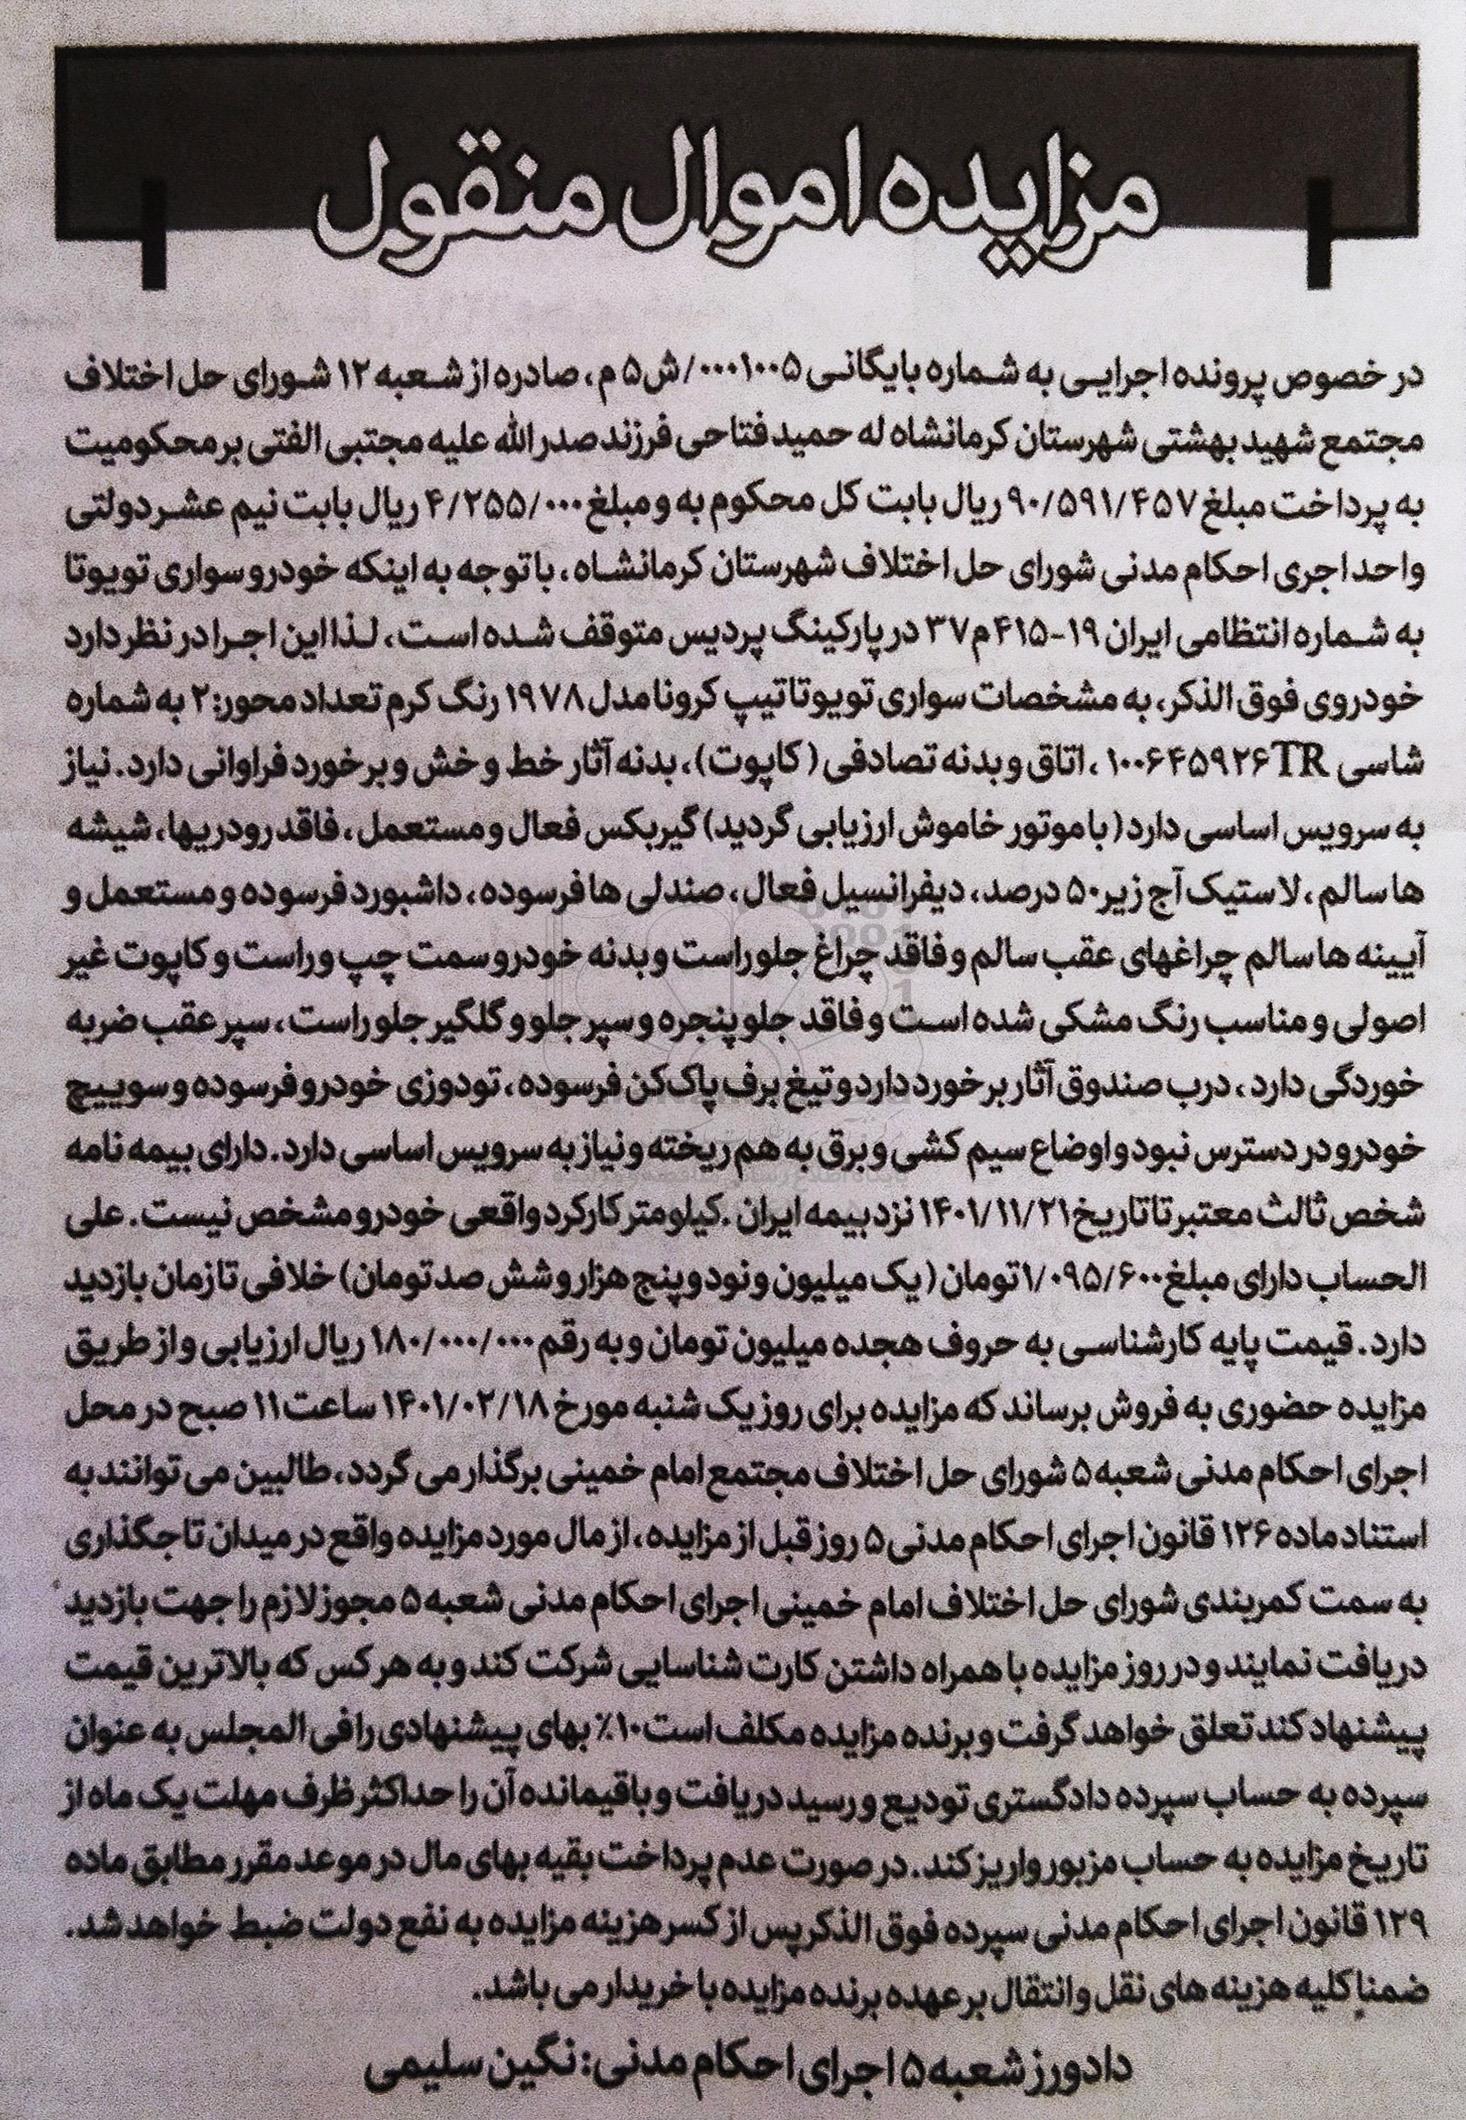 مزایده اموال منقول
در خصوص پرونده اجرایی به شماره بایگانی ۰۰۰۱۰۰۵/ش۵ م، صادره از شعبه ۱۲ شورای حل اختلاف
مجتمع شهید بهشتی شهرستان کرمانشاه له حمید فتاحی فرزند صدرالله علیه مجتبی الفتی بر محکومیت
به پرداخت مبلغ ۹۰/۵۹۱/۴۵۷ ریال بابت کل محکوم به و مبلغ ۴/۲۵۵/۰۰۰ ریال بابت نیم عشر دولتی
واحد اجری احکام مدنی شورای حل اختلاف شهرستان کرمانشاه، با توجه به اینکه خودرو سواری تویوتا
به شماره انتظامی ایران ۱۹-۴۱۵م۳۷ در پارکینگ پردیس متوقف شده است، لذا این اجرا در نظر دارد
خودروی فوق الذکر، به مشخصات سواری تویوتا تیپ کرونا مدل ۱۹۷۸ رنگ کرم تعداد محور:۲ به شماره
شاسی ۱۰۰۶۴۵۹۲۶TR ، اتاق و بدنه تصادفی (کاپوت)، بدنه آثار خط و خش و برخورد فراوانی دارد. نیاز
به سرویس اساسی دارد (با موتور خاموش ارزیابی گردید) گیربکس فعال و مستعمل، فاقد رودریها، شیشه
ها سالم، لاستیک آج زیر ۵۰ درصد، دیفرانسیل فعال، صندلی ها فرسوده، داشبورد فرسوده و مستعمل و
آیینه ها سالم چراغهای عقب سالم و فاقد چراغ جلو راست و بدنه خودرو سمت چپ و راست و کاپوت غیر
اصولی و مناسب رنگ مشکی شده است و فاقد جلو پنجره و سپر جلو و گلگیر جلو راست، سپر عقب ضربه
خوردگی دارد، درب صندوق آثار برخورد دارد و تیغ برف پاک کن فرسوده، تودوزی خودرو فرسوده و سوییچ
خودرو در دسترس نبود و اوضاع سیم کشی و برق به هم ریخته و نیاز به سرویس اساسی دارد. دارای بیمه نامه
شخص ثالث معتبر تا تاریخ ۱۴۰۱/۱۱/۲۱ نزد بیمه ایران .کیلومتر کارکرد واقعی خودرو مشخص نیست. علی
الحساب دارای مبلغ ۱/۰۹۵/۶۰۰ تومان (یک میلیون و نود و پنج هزار و شش صد تومان) خلافی تا زمان بازدید
دارد. قیمت پایه کارشناسی به حروف هجده میلیون تومان و به رقم ۱۸۰/۰۰۰/۰۰۰ ریال ارزیابی و از طریق
مزایده حضوری به فروش برساند که مزایده برای روز یک شنبه مورخ ۱۴۰۱/۰۲/۱۸ ساعت ۱۱ صبح در محل
اجرای احکام مدنی شعبه ۵ شورای حل اختلاف مجتمع امام خمینی برگذار می گردد، طالبین می توانند به
استناد ماده ۱۲۶ قانون اجرای احکام مدنی ۵ روز قبل از مزایده، از مال مورد مزایده واقع در میدان تاجگذاری
به سمت کمربندی شورای حل اختلاف امام خمینی اجرای احکام مدنی شعبه ۵ مجوز لازم را جهت بازدید
دریافت نمایند و در روز مزایده با همراه داشتن کارت شناسایی شرکت کند و به هر کس که بالاترین قیمت
پیشنهاد کند تعلق خواهد گرفت و برنده مزایده مکلف است ۱۰٪ بهای پیشنهادی را فی المجلس به عنوان
سپرده به حساب سپرده دادگستری تودیع و رسید دریافت و باقیمانده آن را حداکثر ظرف مهلت یک ماه از
تاریخ مزایده به حساب مزبور واریز کند. در صورت عدم پرداخت بقیه بهای مال در موعد مقرر مطابق ماده
۱۲۹ قانون اجرای احکام مدنی سپرده فوق الذکر پس از کسر هزینه مزایده به نفع دولت ضبط خواهد شد.
ضمنا کلیه هزینه های نقل و انتقال بر عهده برنده مزایده با خریدار می باشد.
دادورز شعبه ۵ اجرای احکام مدنی: نگین سلیمی